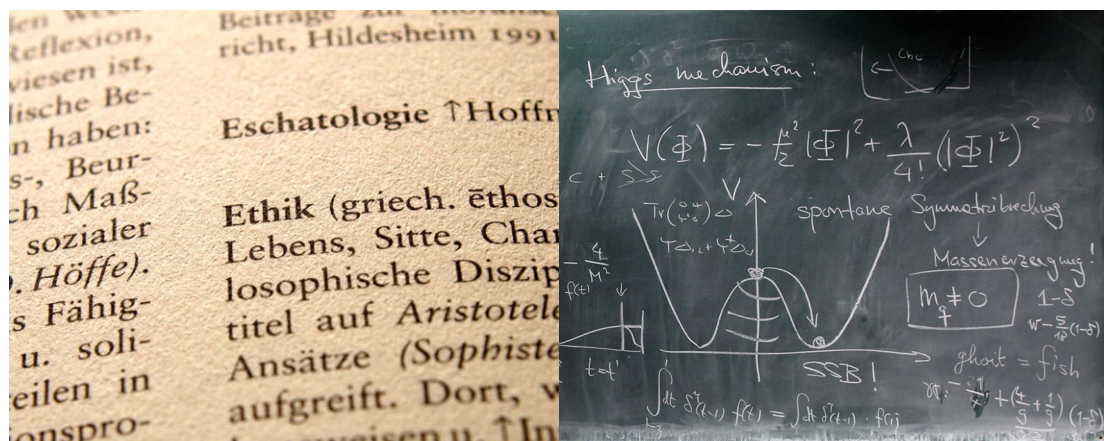 Reflexion,
wiesen ist,
lische Be-
n haben:
s-, Beur-
ch Maß-
sozialer
. Höffe).
s Fähig-
u. soli-
eilen in
onspro-
Beiträge zur
richt, Hildesheim 1991
Eschatologie ↑Hoffn
Ethik (griech. ēthos
Lebens, Sitte, Char
losophische Diszip
titel auf Aristotele
Ansätze (Sophiste
aufgreift. Dort, w
Higgs mechanism:
V(Φ) = - μ²/2 |Φ|² + λ/4! (|Φ|²)²
V
spontane Symmetriebrechung
↓
Massenerzeugung!
m_q ≠ 0
1-δ
- 4/M²
f(t)
t=t'
SSB!
ghost = fish